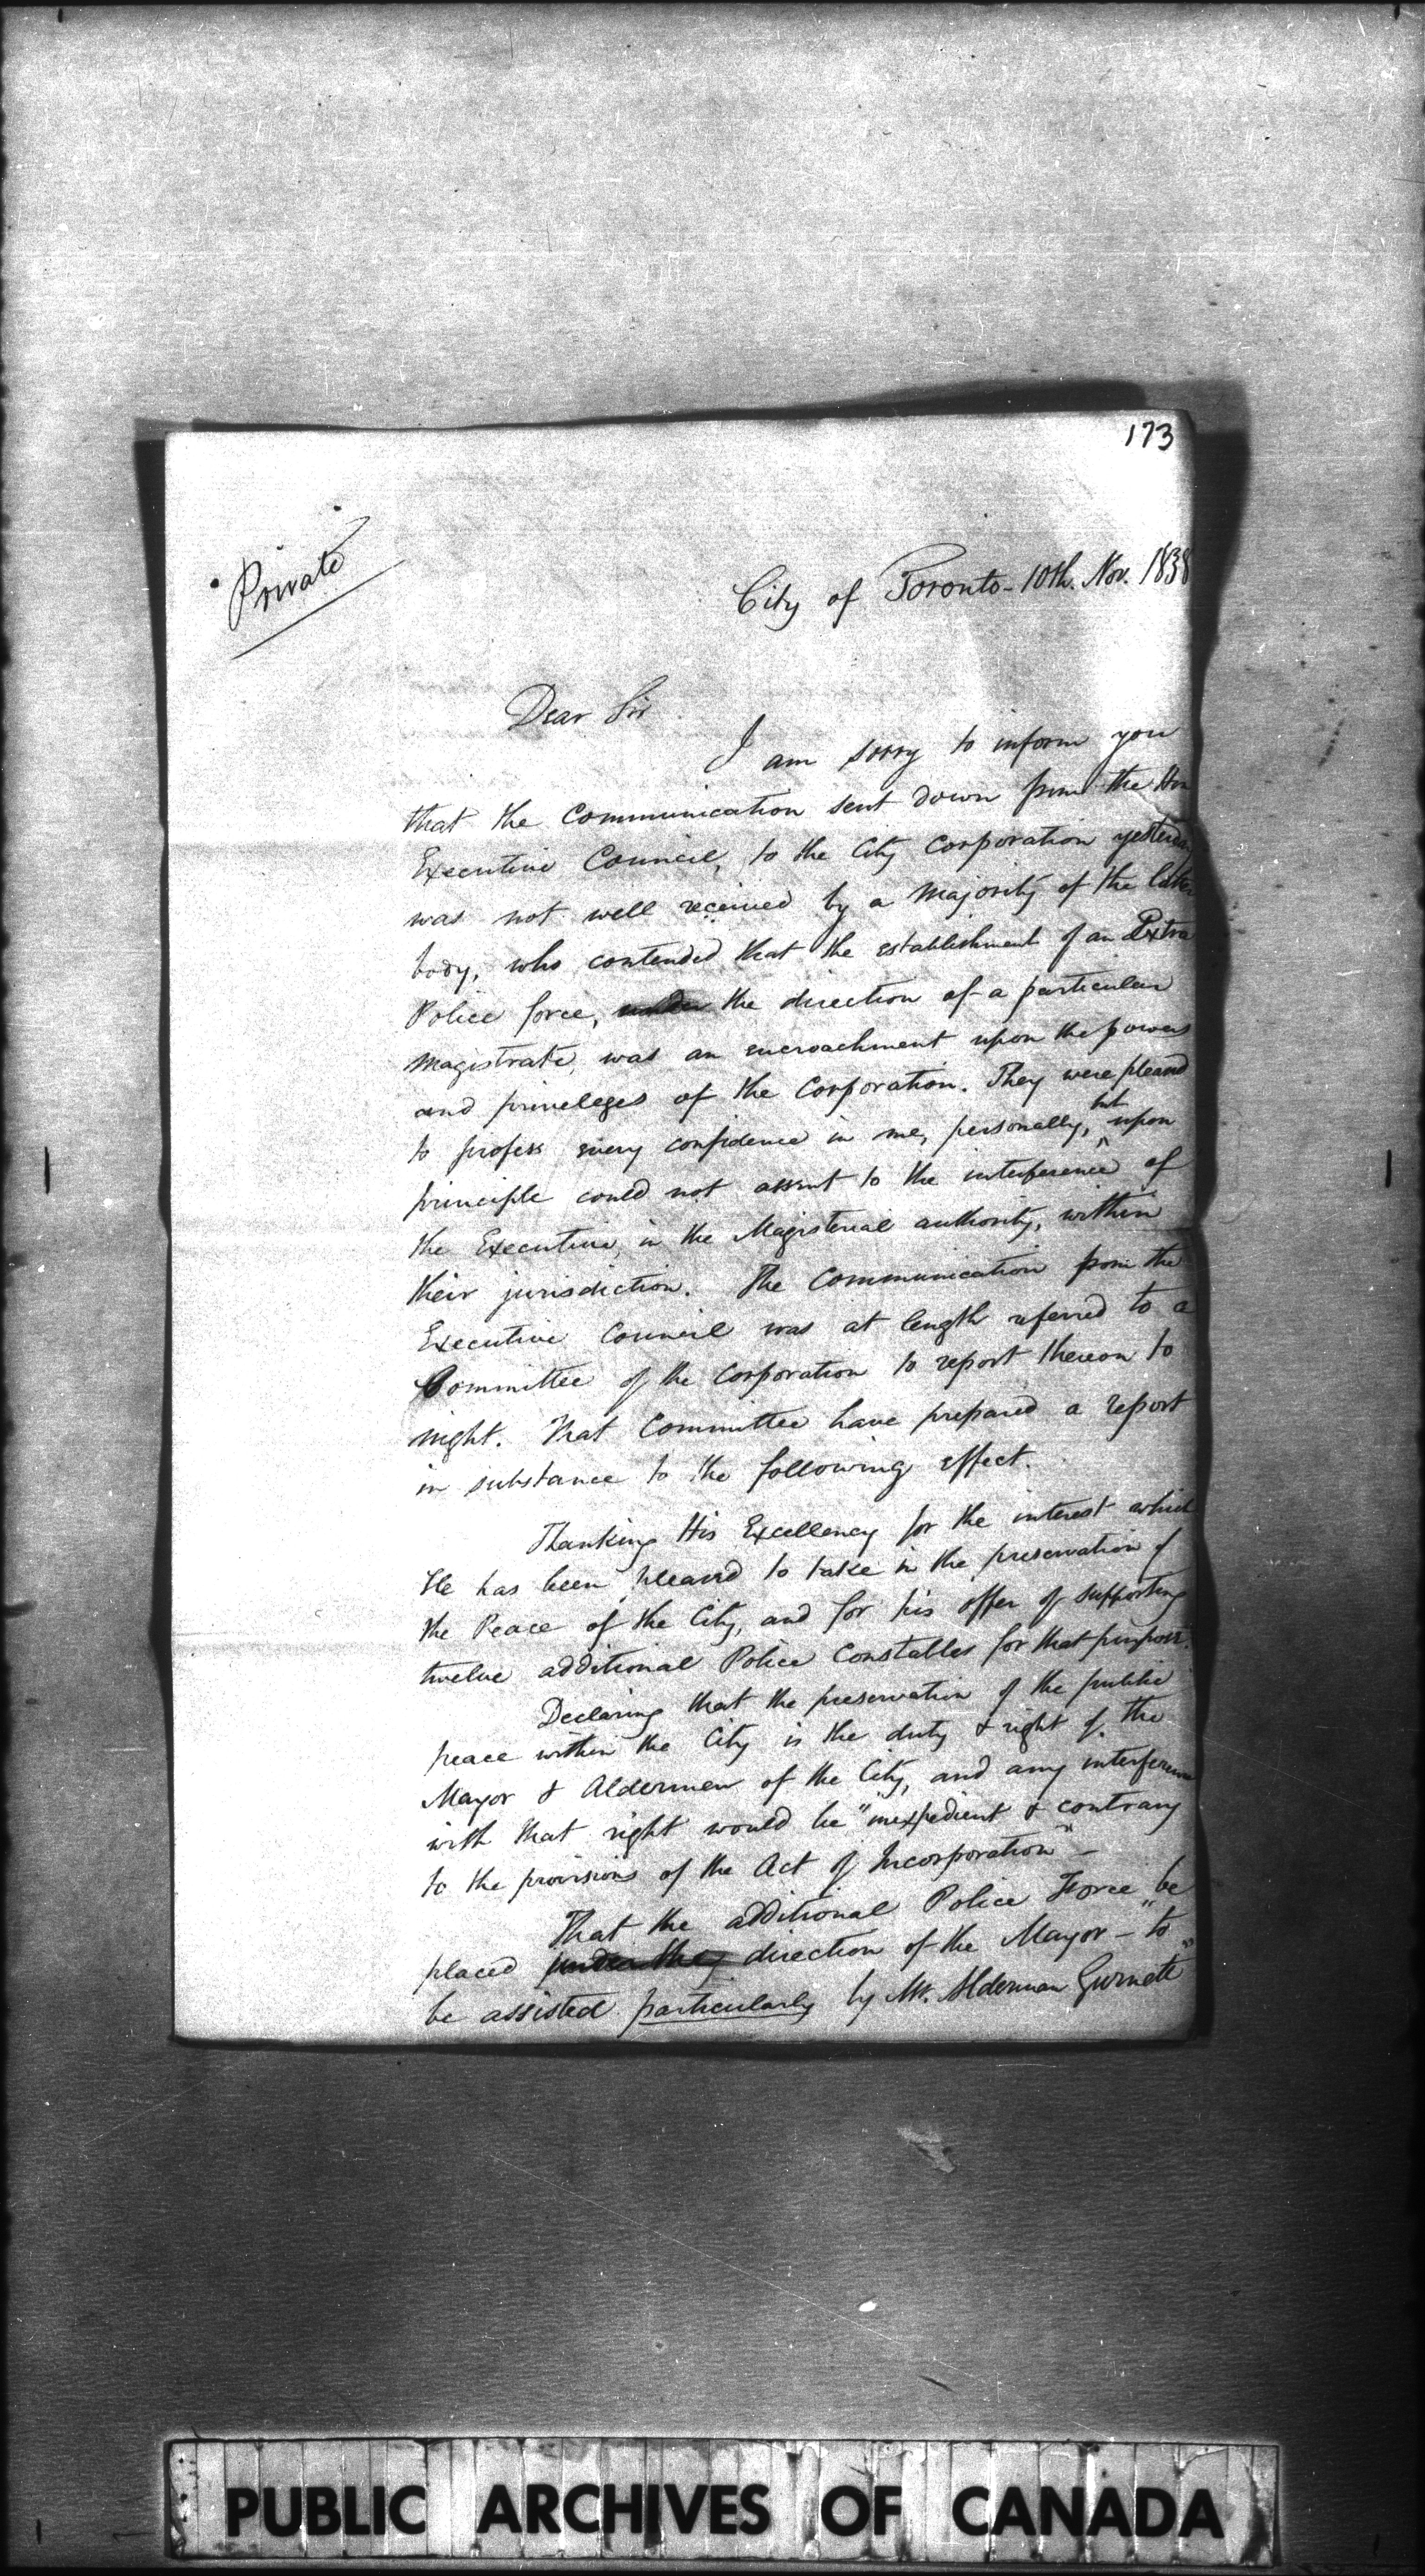 173
Private
City of Toronto - 10th. Nov. 1838
Dear Sir
I am sorry to inform you
that the Communication sent down from the Hon
Executive Council, to the City Corporation yesterday
was not well received by a majority of the latter
body, who contended that the establishment of an Extra
Police force, under the direction of a particular
magistrate, was an encroachment upon the powers
and privileges of the Corporation. They were pleased
to profess every confidence in me, personally, but upon
principle could not assent to the interference of
the Executive, in the Magisterial authority, within
their jurisdiction. The Communication from the
Executive Council was at length referred to a
Committee of the Corporation to report thereon to
night. That Committee have prepared a report
in substance to the following effect.
Thanking His Excellency for the interest which
He has been pleased to take in the preservation of
the Peace of the City, and for his offer of supporting
twelve additional Police Constables for that purpose.
Declaring that the preservation of the public
peace within the City is the duty & right of the
Mayor & Aldermen of the City, and any interference
with that right would be "inexpedient & contrary
to the provisions of the Act of Incorporation" -
That the additional Police Force be
placed under the direction of the Mayor - "to
be assisted particularly by Mr. Alderman Gurnett"
PUBLIC ARCHIVES OF CANADA